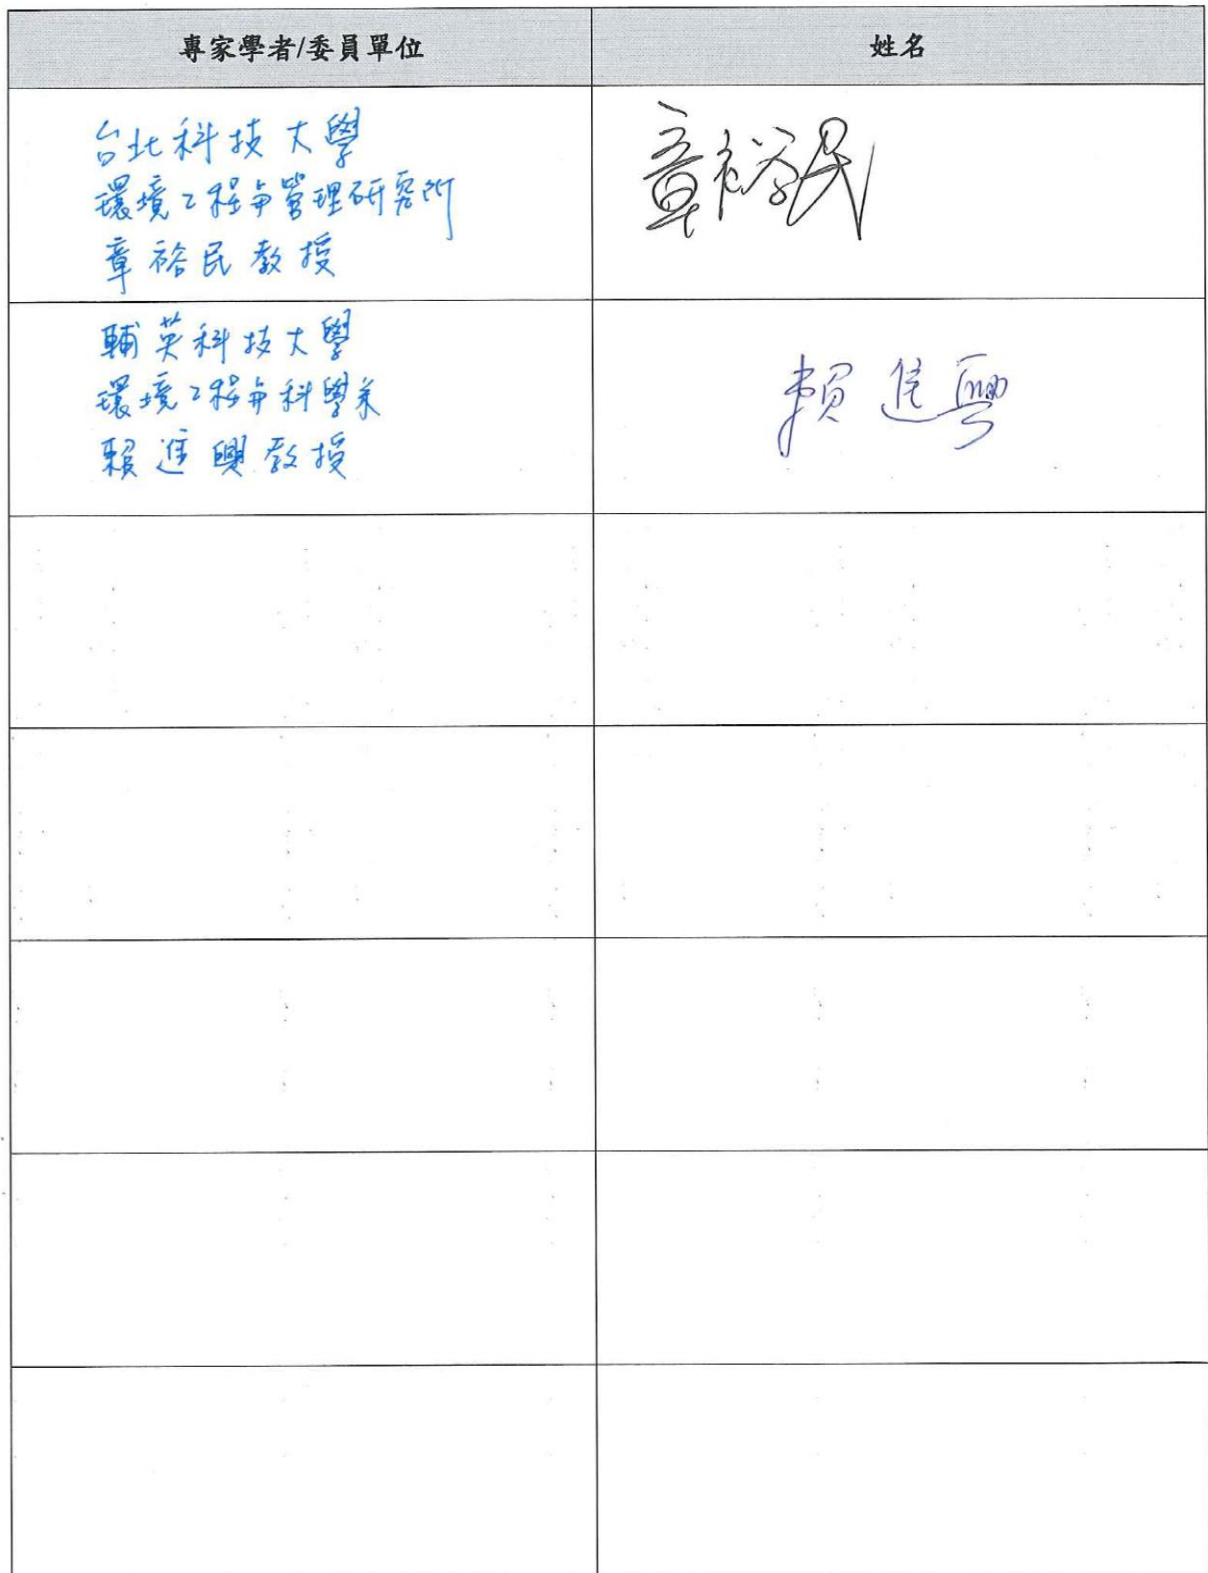 專家學者/委員單位
姓名
台北科技大學
環境工程與管理研究所
章裕民教授
章裕民
輔英科技大學
環境工程與科學系
賴進興教授
賴進興